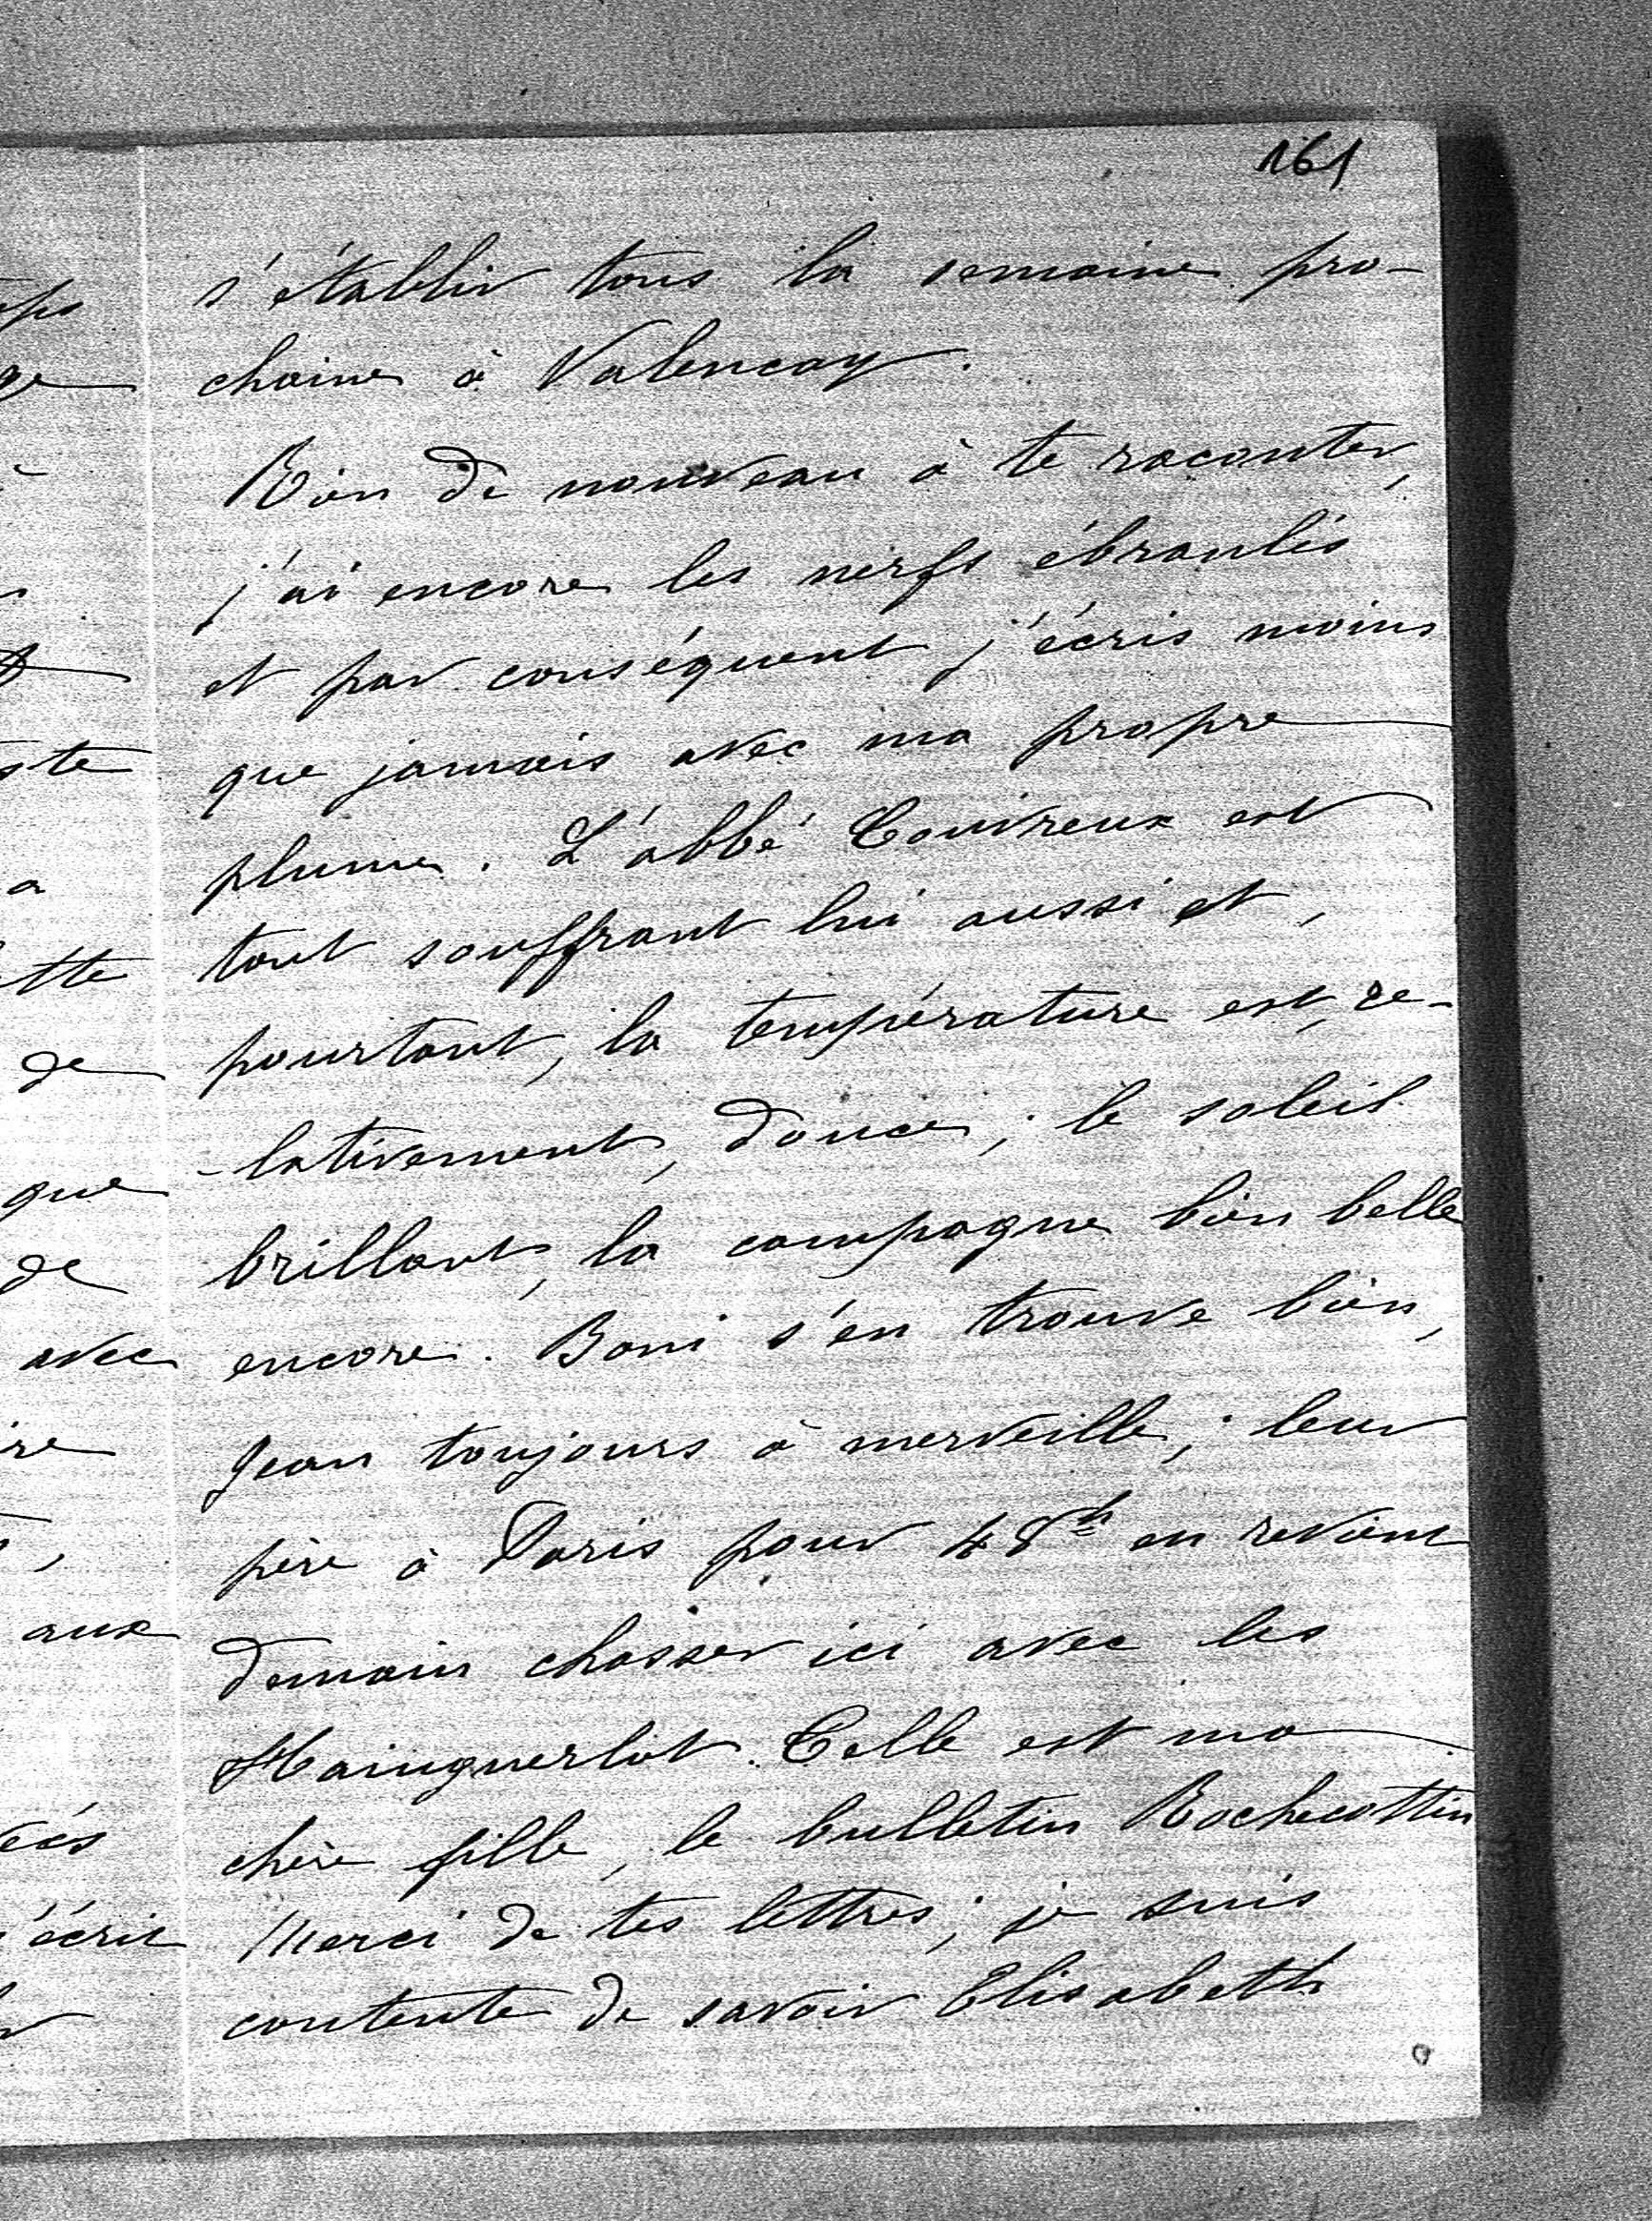 161
s'établir tous la semaine pro-
chaine à Valencay.
Rien de nouveau à te raconter,
j'ai encore les nerfs ébranlés
et par conséquent j'écris moins
que jamais avec ma propre
plume. L'abbé Couvreux est
tout souffrant lui aussi et,
pourtant, la température est, re-
-lativement, douce; le soleil
brillant, la campagne bien belle
encore. Boni s'en trouve bien,
Jean toujours à merveille; leur
père à Paris pour 48h en revient
demain chasser ici avec les
Hainguerlot. Telle est ma
chère fille, le bulletin Rochecottin
Merci de tes lettres; je suis
contente de savoir Elisabeth
ste
a
tte
de
que
de
avec
aux
écrit